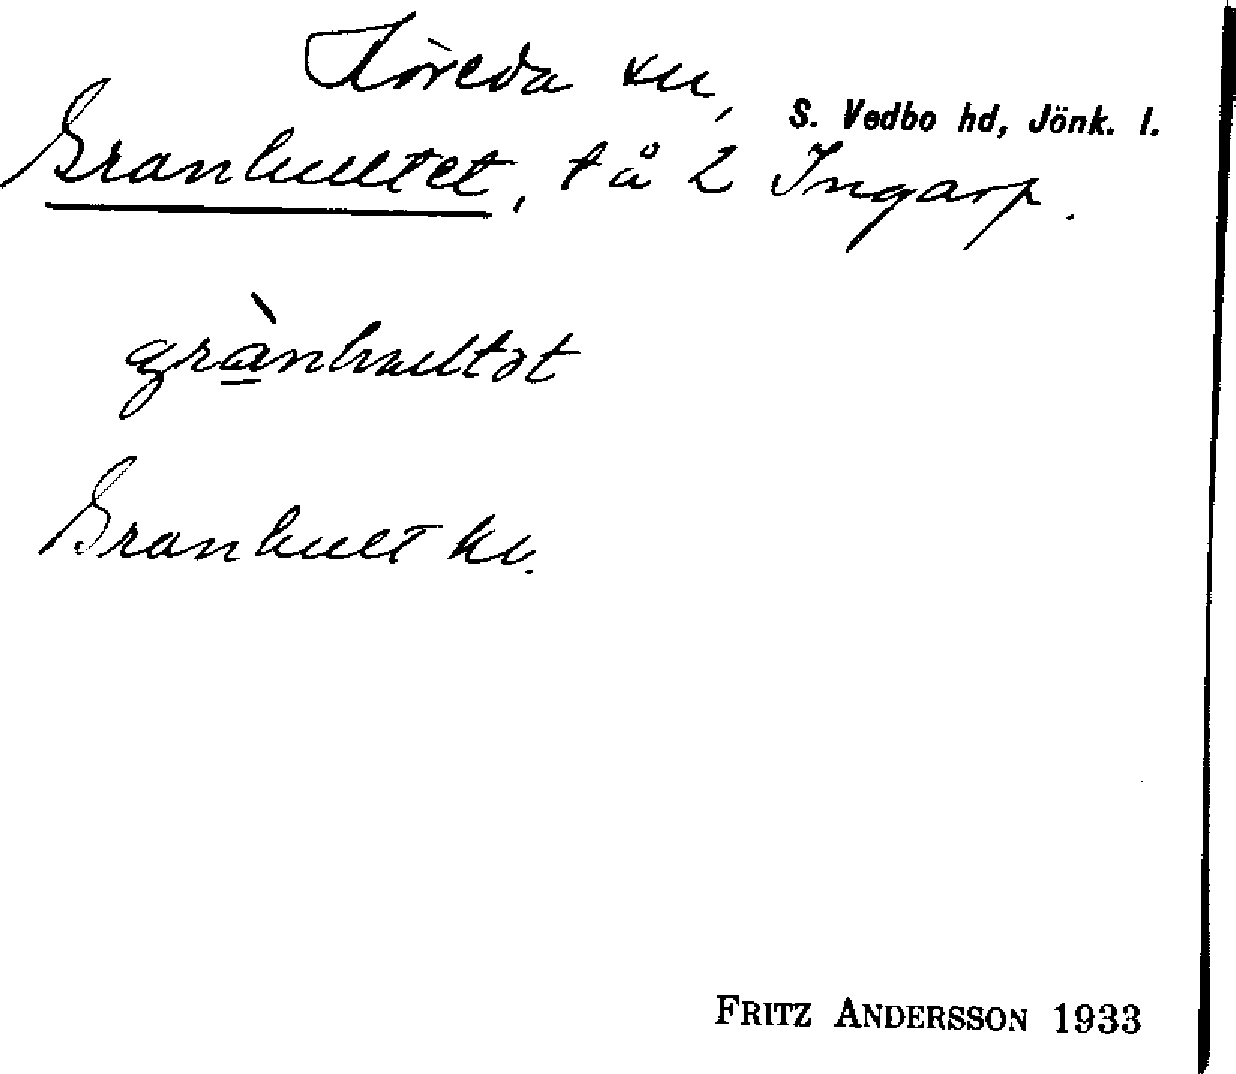 Höreda sn,
S. Vedbo hd, Jönk. l.
Granhultet, t å 2 Ingarp.
grànhultət
Granhult hv.
FRITZ ANDERSSON 1933